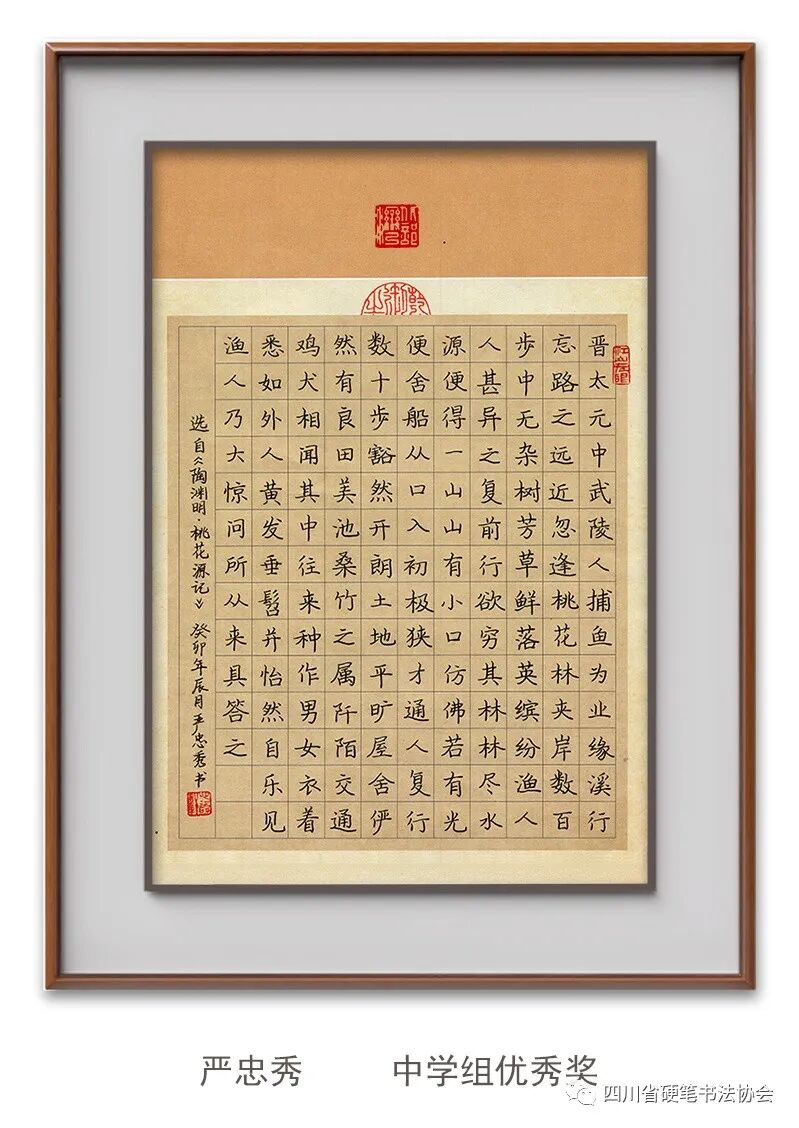 晋太元中武陵人捕鱼为业缘溪行
忘路之远近忽逢桃花林夹岸数百
步中无杂树芳草鲜落英缤纷渔人
人甚异之复前行欲穷其林林尽水
源便得一山山有小口仿佛若有光
便舍船从口入初极狭才通人复行
数十步豁然开朗土地平旷屋舍俨
然有良田美池桑竹之属阡陌交通
鸡犬相闻其中往来种作男女衣着
悉如外人黄发垂髫并怡然自乐见
渔人乃大惊问所从来具答之
选自《陶渊明·桃花源记》 癸卯年辰月严忠秀书
严忠秀 中学组优秀奖
四川省硬笔书法协会